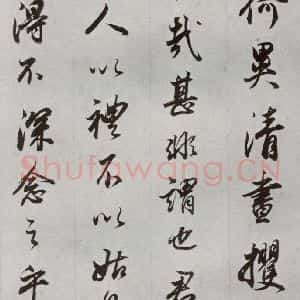 何異清晝攫
哉甚謂也君
人以禮不以姑
得不深念之乎
Shufawang.CN